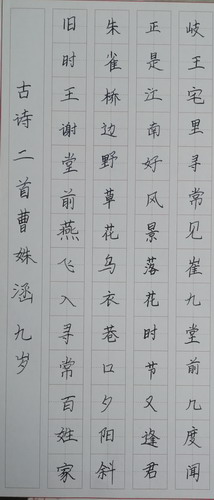 岐王宅里寻常见崔九堂前几度闻
正是江南好风景落花时节又逢君
朱雀桥边野草花乌衣巷口夕阳斜
旧时王谢堂前燕飞入寻常百姓家
古诗二首曹姝涵九岁